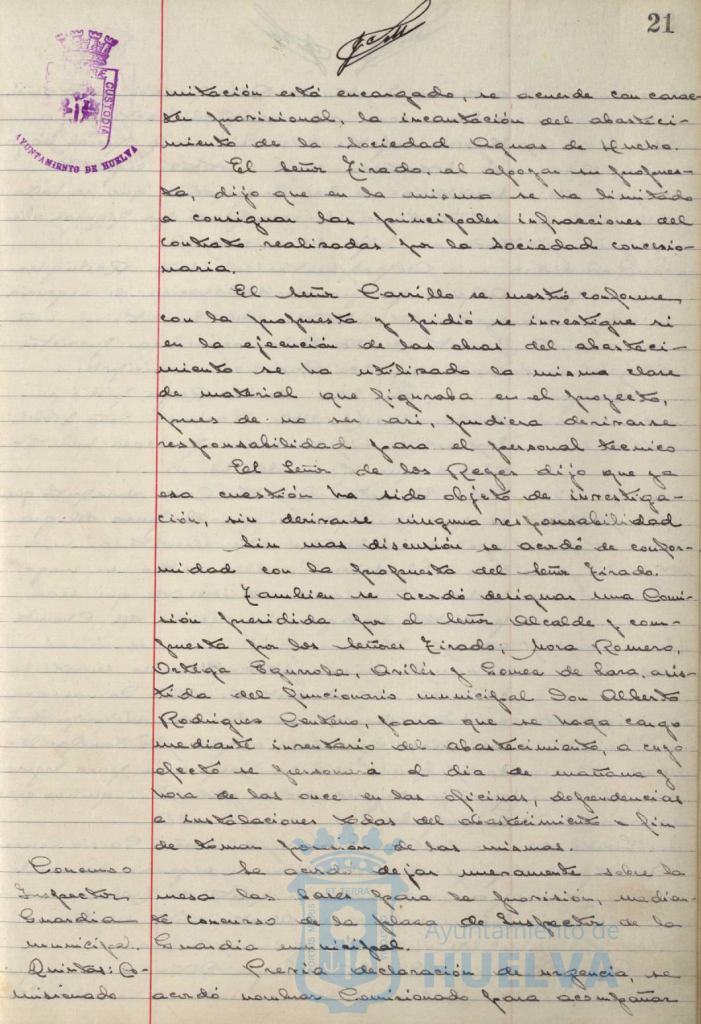 21
CUSTODIA
AYUNTAMIENTO DE HUELVA
mitación está encargado, se acuerde con carac-
ter provisional, la incautación del abasteci-
miento de la Sociedad Aguas de Huelva.
El Señor Tirado, al apoyar su propues-
ta, dijo que en la misma se ha limitado
a consignar las principales infracciones del
contrato realizadas por la Sociedad concesio-
naria.
El Señor Carrillo se mostró conforme
con la propuesta y pidió se investigue si
en la ejecución de las obras del abasteci-
miento se ha utilizado la misma clase
de material que figuraba en el proyecto,
pues de no ser asi, pudiera derivarse
responsabilidad para el personal tecnico
El Señor de los Reyes dijo que ya
esa cuestión ha sido objeto de investiga-
ción, sin derivarse ninguna responsabilidad
Sin mas discusión se acordó de confor-
midad con la propuesta del Señor Tirado.
Tambien se acordó designar una Comi-
sión presidida por el Señor Alcalde y com-
puesta por los Señores Tirado, Mora Romero,
Ortega y Gomez de Lara, asis-
tida del funcionario municipal Don Alberto
Rodriguez Centeno, para que se haga cargo
mediante inventario del abastecimiento, a cuyo
efecto se personará el dia de mañana y
hora de las once en las oficinas, dependencias
e instalaciones todas del abastecimiento a fin
de tomar posesión de las mismas.
Concurso
Inspector
Guardia
municipal.
Se acordó dejar nuevamente sobre la
mesa las bases para la provisión, median-
te concurso de la plaza de Inspector de la
Guardia municipal.
Quintas: Co-
misionado
Previa declaración de urgencia, se
acordó nombrar Comisionado para acompañar
Ayuntamiento de
HUELVA